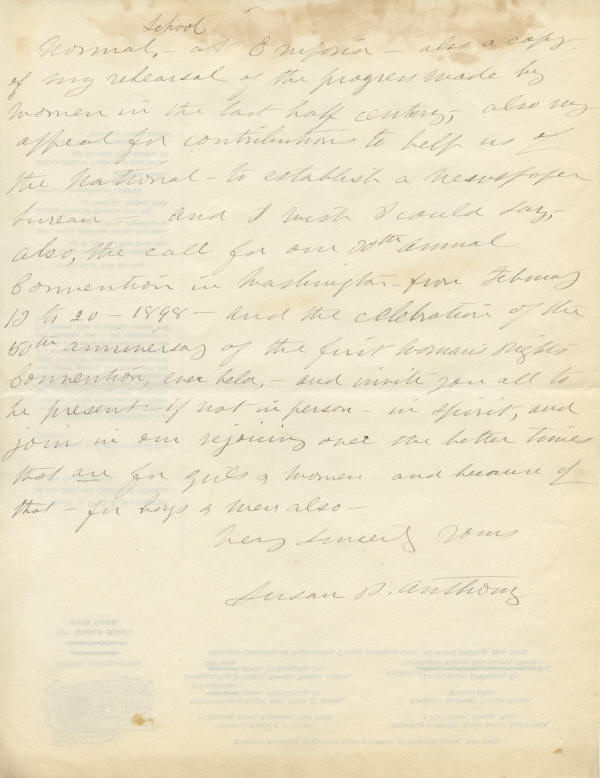 School
Normal, - at Emporia - also a copy
of my rehearsal of the progress made by
women in the last half century, also my
appeal for contributions to help us of
the National - to establish a newspaper
bureau - and I wish I could say,
also, the call for our 30th annual
Convention in Washington - from February
13 to 20 - 1898 - and the celebration of the
50th anniversary of the first Woman's Rights
Convention, ever held, - and invite you all to
be present - if not in person - in spirit, and
join in our rejoicing over the better times
that are for girls & women - and because of
that - for boys & men also -
Very Sincerely Yours
Susan B. Anthony